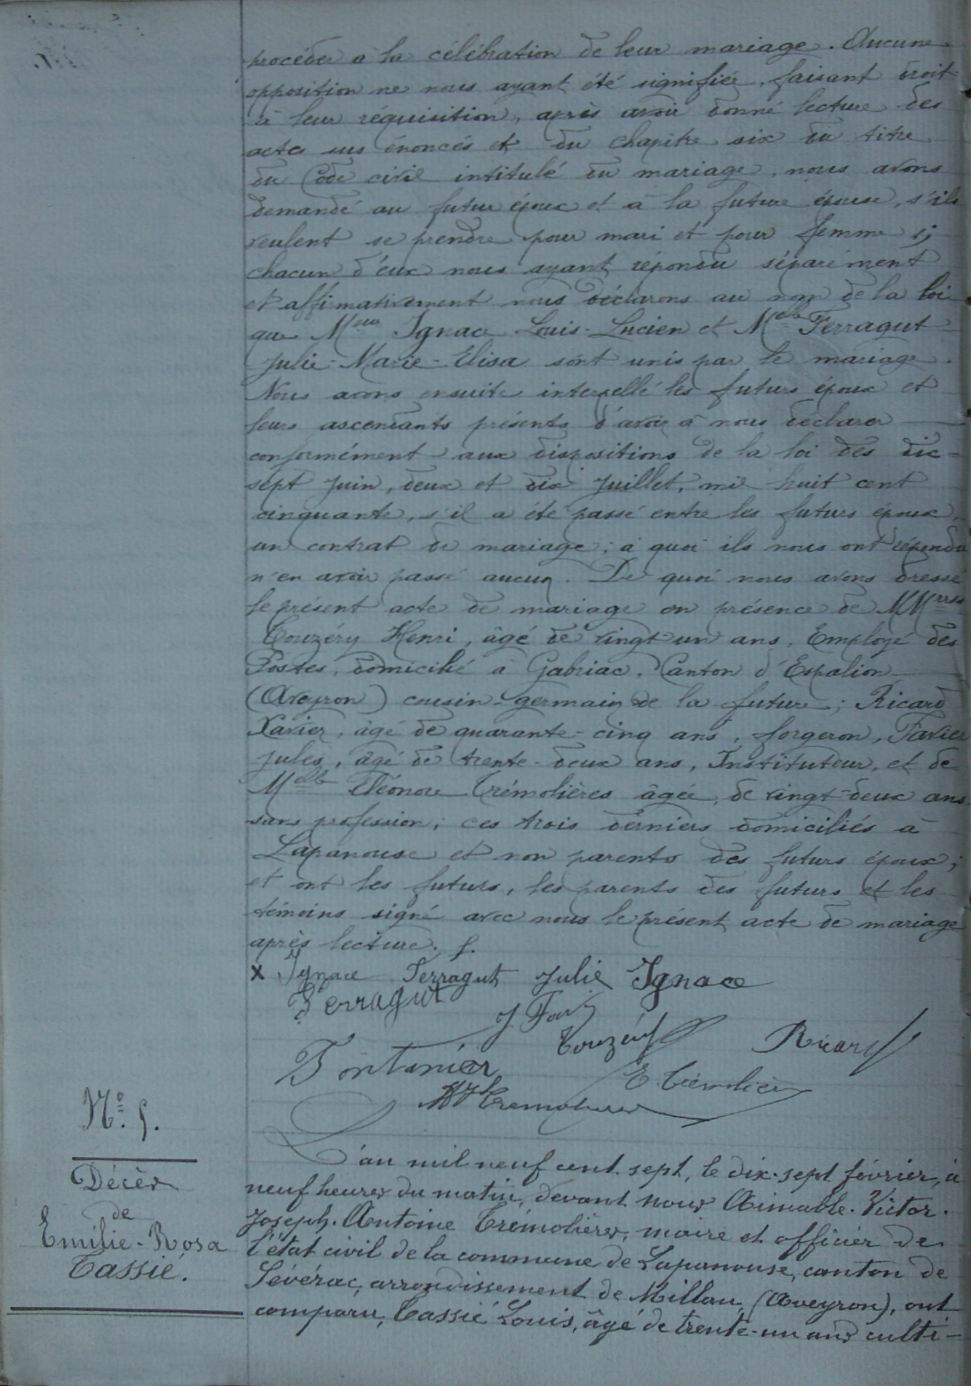 procéder à la célébration de leur mariage. Aucune
opposition ne nous ayant été signifiée, faisant droit
à leur réquisition, après avoir donné lecture des
actes sus énoncés et du chapitre six du titre
du Code civil intitulé du mariage, nous avons
demandé au futur époux et à la future épouse, s'ils
veulent se prendre pour mari et pour femme ;
chacun d'eux nous ayant répondu séparément
et affirmativement nous déclarons au nom de la loi
que Ignace Louis-Lucien et Melle Ferragut
Julie-Marie-Elisa sont unis par le mariage.
Nous avons ensuite interpellé les futurs époux et
leurs ascendants présents d'avoir à nous déclarer
conformément aux dispositions de la loi des dix-
sept Juin, deux et dix Juillet, mil huit cent
cinquante, s'il a été passé entre les futurs époux
un contrat de mariage ; à quoi ils nous ont répondu
n'en avoir passé aucun. De quoi nous avons dressé
le présent acte de mariage en présence de MMrss
Couzéry Henri, âgé de vingt un ans, Employé des
Postes, domicilié à Gabriac, Canton d'Espalion
(Aveyron) cousin-germain de la future ; Ricard
Xavier, âgé de quarante-cinq ans, forgeron, Favier
Jules, âgé de trente-deux ans, Instituteur, et de
Melle Eléonore Trémolières âgée, de vingt-deux ans
sans profession ; ces trois derniers domiciliés à
Lapanouse et non parents des futurs époux ;
et ont les futurs, les parents des futurs et les
témoins signé avec nous le présent acte de mariage
après lecture. f.
x Ignace Ferragut Julie Ignace
Ferragut
J Fav
Couzéry Ricard
Fontanier
E Trémolières
Tremolieres
N° 5.
Décès
de
Emilie-Rosa
Cassié.
L'an mil neuf cent sept, le dix-sept février, à
neuf heures du matin, devant nous Aimable-Victor-
Joseph-Antoine Trémolières, maire et officier de
l'état civil de la commune de Lapanouse, canton de
Sévérac, arrondissement de Millau, (Aveyron), ont
comparu, Cassié Louis, âgé de trente-un ans culti-